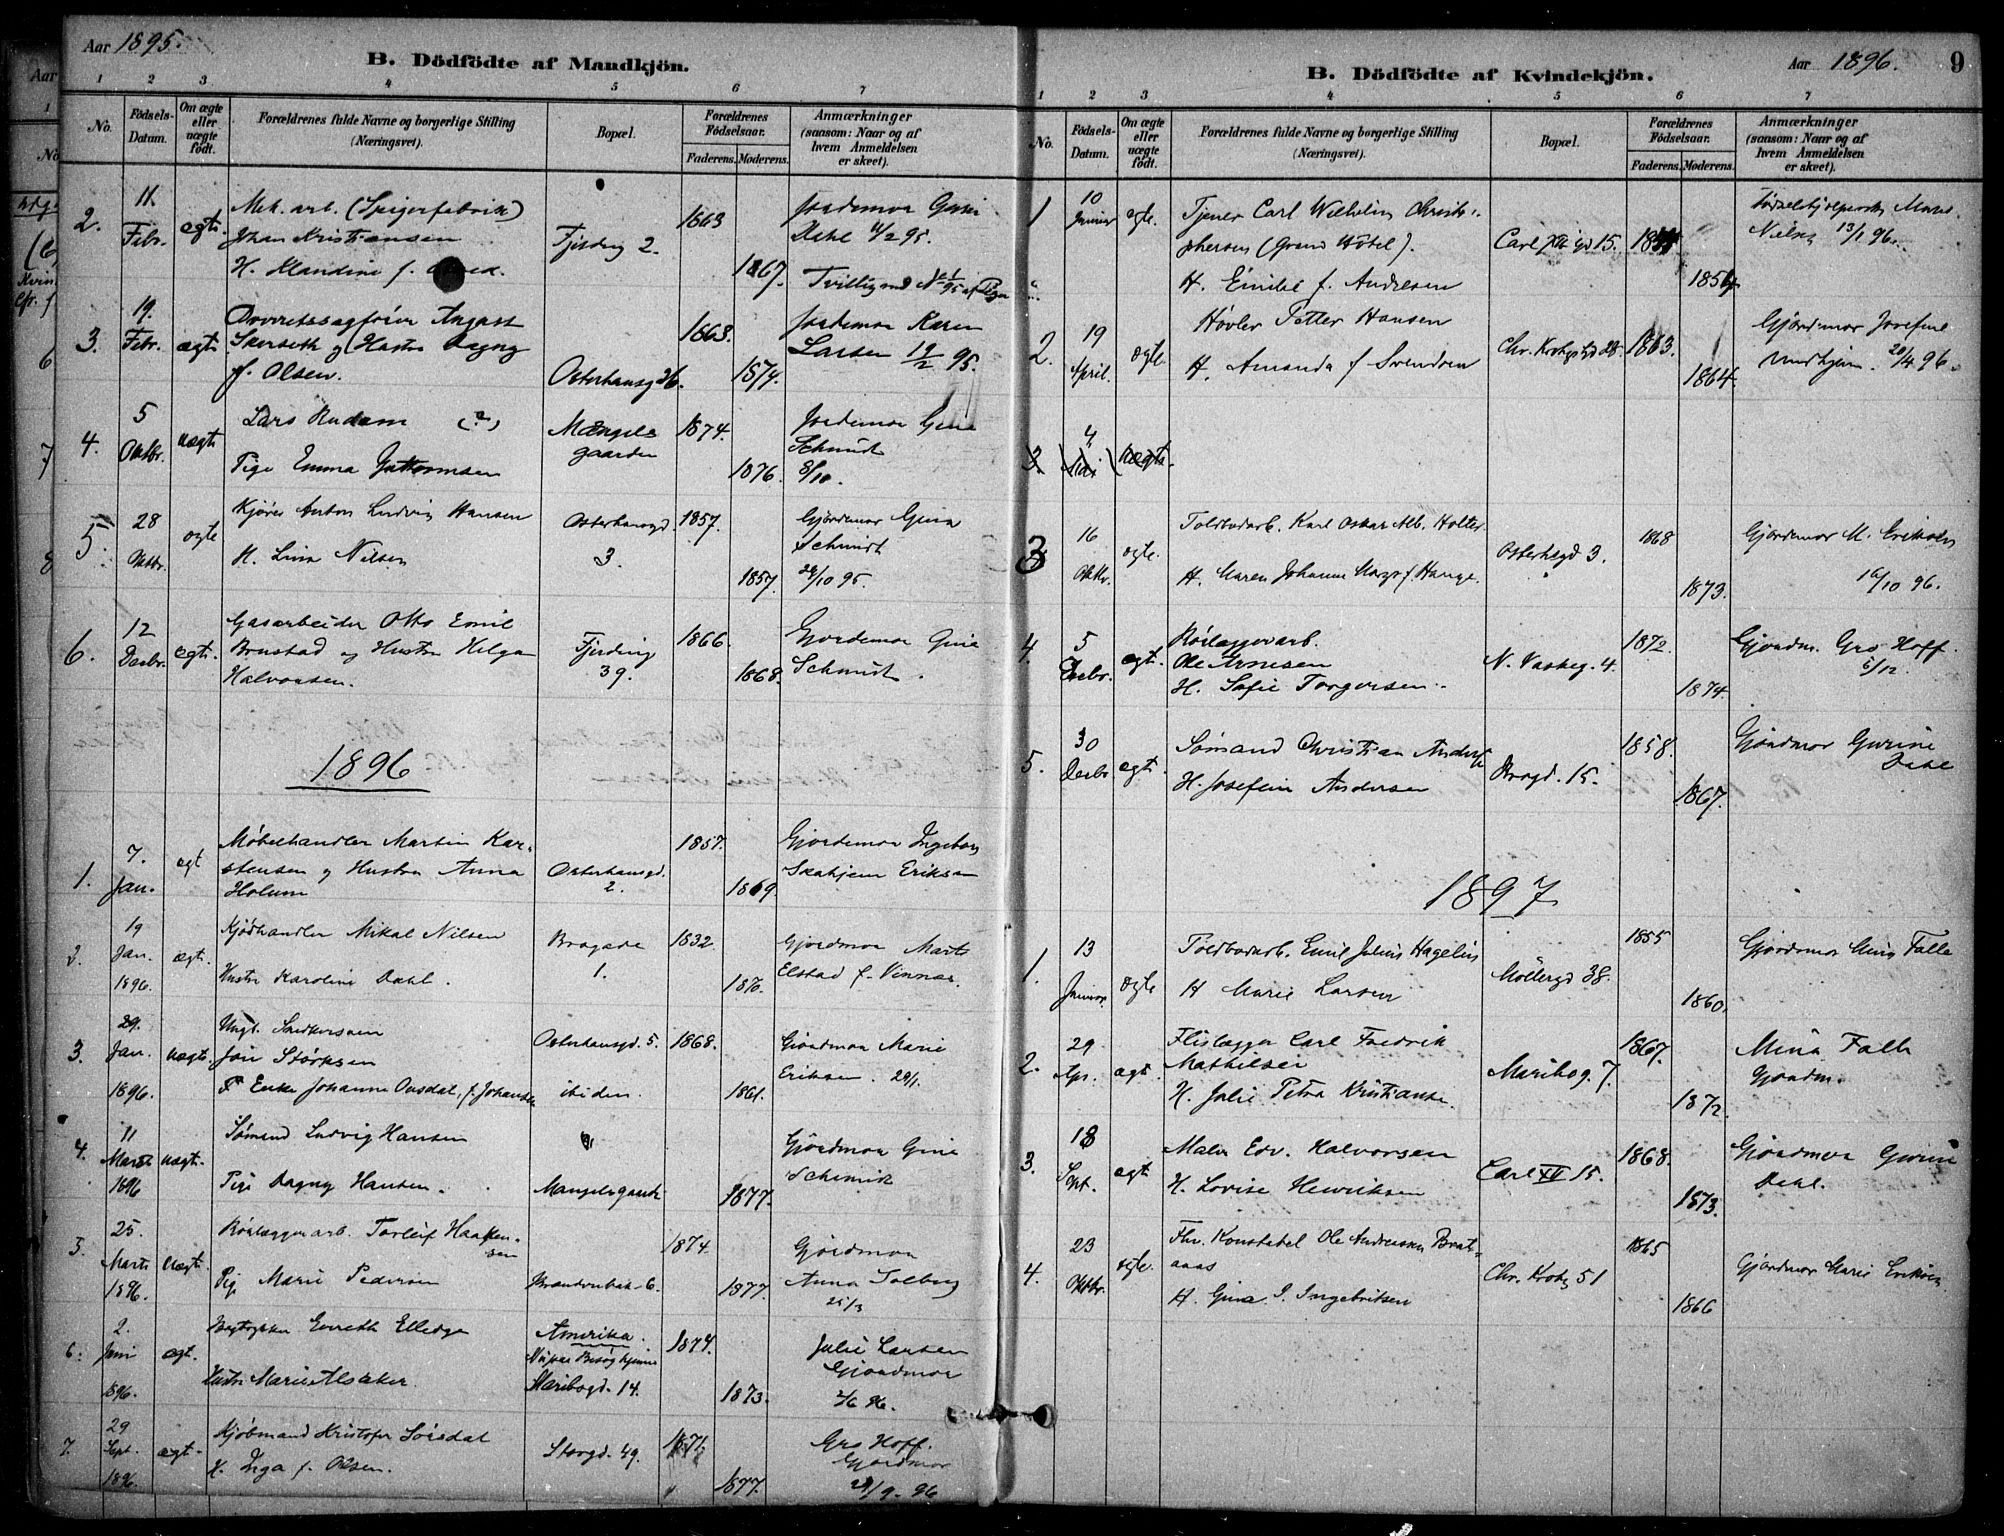 Aar 1895.
B. Dödfödte af Mandkjön.
1 2 3 4 5 6 7
No. Födsels-Datum. Om ægte eller uægte födt. Forældrenes fulde Navne og borgerlige Stilling (Næringsvei). Bopæl. Forældrenes Födselsaar. Faderens. Moderens. Anmærkninger (saasom: Naar og af hvem Anmeldelsen er skeet).
2. 11. Febr. ægte Mek. arb. (Spigerfabrik)
Johan Kristiansen Fjerdg 2. 1863
H. Klandine f. 1867.
Jordemor Gurine
Dahl 11/2 95.
Tvilling med No 1/95 af Pign
3. 19. Febr. ægte Overretssagfører August
Skerseth og Hustru Dagny
f. Olsen. Osterhausg 26. 1863. 1874.
Jordemor Karen
Larsen 19/2 95.
4. 5 Oktbr. uægte Lars Rudem (?)
Pige Emma Guttormsen
Mangels gaarden 1874. 1876.
Jordemor Gina
Schmidt
8/10.
5. 28 Oktbr. ægte Kjører Anton Ludvig Hansen
H. Lina Nilsen
Osterhausgd. 3. 1857. 1857.
Gjordemor Gina
Schmidt
29/10 95.
6. 12 Decbr. ægte Gasarbeider Otto Emil
Brustad og Hustru Helga
Halvorsen.
Fjerding 39. 1866. 1868.
Gjordemor Gina
Schmidt.
1896
1. 7. Jan. ægt Møbelhandler Martin Kar-
stensen og Hustru Anna
Holum
Osterhausgd. 2. 1857. 1869
Gjordemor Ingeborg
Skahjem Eriksen
2. 19 Jan. 1896. ægt. Kjødhandler Mikal Nilsen
Hustru Karoline Dahl.
Brogade 1. 1832. 1870.
Gjordmor Marte
Elstad f. Vinnes.
3. 29. Jan. 1896. uægt. Ungk.
Jon Størksen
F. Enke Johanne Ovesdal, f. Johansen
Osterhausgd. 5. ibidem. 1868. 1861.
Gjordmor Marie
Eriksen. 29/1.
4. 11 Marts 1896 uægt. Sømand Ludvig Hansen
Pige Dagny Hansen.
Mangelsgaard 1877.
Gjordmor Gina
Schmidt
5. 25. Marts 1896. uægt. Rørlæggerarb. Torleif Haaken-
sen
Pige Marie Pedersen
Brandenbak. 6. 1874. 1877.
Gjordmor
Anna Solberg
25/3
6. 2. Juni 1896. ægt. Bogtrykker Elledge
Hustru Marie Alsaker
Amerika.
Maribogd. 14. 1874. 1873.
Julie Larsen
Gjordmor
2/6 96.
7. 29 Sept. 1896. ægt. Kjøbmand Kristofer Sørsdal
H. Inga f. Olsen.
Storgd. 49. 1871. 1877.
Gro Hoff.
Gjordmor
29/9 - 96
B. Dödfödte af Kvindekjön.
Aar 1896. 9
1 2 3 4 5 6 7
No. Födsels-Datum. Om ægte eller uægte födt. Forældrenes fulde Navne og borgerlige Stilling (Næringsvei). Bopæl. Forældrenes Födselsaar. Faderens. Moderens. Anmærkninger (saasom: Naar og af hvem Anmeldelsen er skeet).
1 10 Januar ægte. Tjener Carl Wilhelm Christo-
phersen (Grand Hôtel).
H. Emilie f. Andresen
Carl XII gd 15. 1854
Nielsen 13/1 96.
2. 19 April. ægte. Høvler Petter Hansen
H. Amanda f Svendsen
Chr. Krohgsgd 28. 1863. 1864.
Gjordemor Josefine
20/4 96.
3. 4 Mai uægte.
3 16 Oktbr. ægte. Toldbodarb. Karl Oskar Alb. Holter
H. Maren Johanne f Hauge.
Osterhsgd 3. 1868 1873.
Gjordemor M. Eriksen
16/10 96.
4. 5 Decbr. ægt. Rørlæggerarb.
Ole Arnesen
H. Sofie Torgersen.
N. Vaskeg. 4. 1872. 1874.
Gjordm. Gro Hoff.
5/12.
5. 30 Decbr ægt. Sømand Christian Anders
H. Josefine Andersen
Brogd. 15. 1858. 1867.
Gjordmor Gurine
Dahl
1897
1. 13 Januar ægte Toldbodarb. Emil Julius Hagelin
H Marie Larsen
Møllergd 38. 1855 1860.
Gjordemor Mina Falle
2. 29 Apr. ægt. Flislægger Carl Fredrik
Mathilsen
H. Julie Petra Kristianse.
Maribog. 7. 1867. 1872.
Mina Falle
Gjordm.
3. 18 Sept. ægt Maler Edv. Halvorsen
H. Lovise Henriksen
Carl XII 15. 1868. 1873.
Gjordmor Gurine
Dahl.
4. 23 Oktbr. ægte. Fhv. Konstabel Ole Andreassen Brat-
aas
H. Gina I. Ingebritsen
Chr. Krohg 51 1865 1866
Gjordmor Marie Eriksen